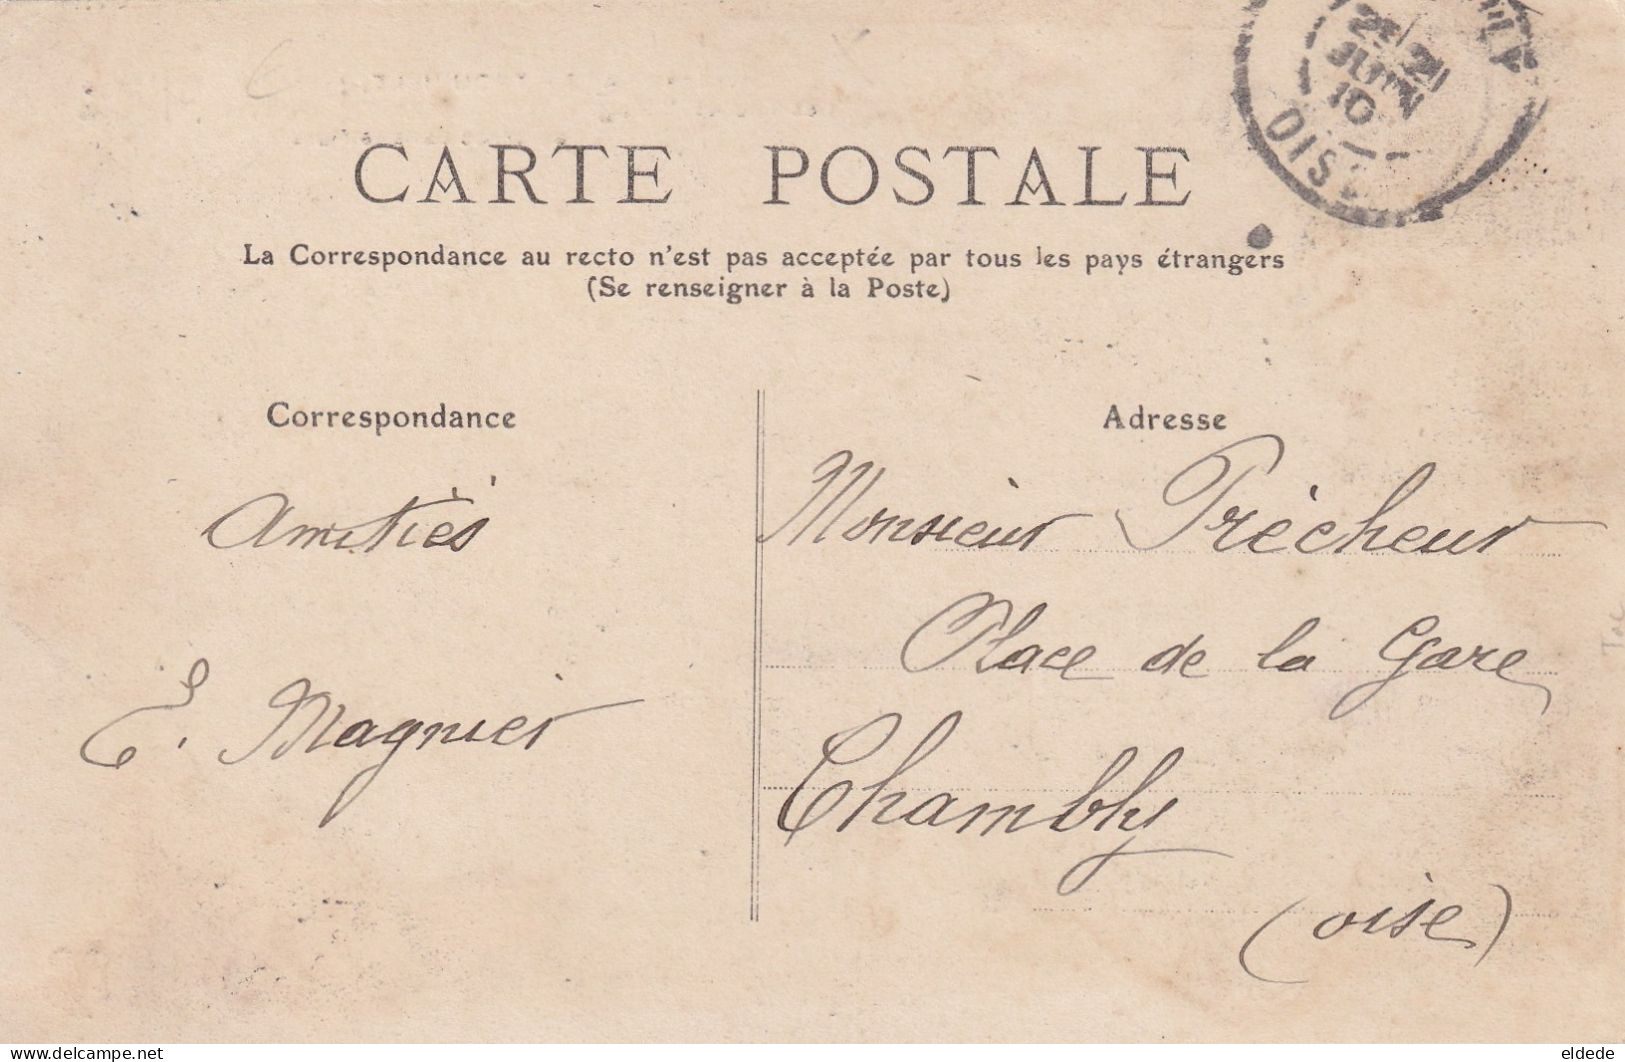 25
21
JUIN
10
OISE
CARTE POSTALE
La Correspondance au recto n'est pas acceptée par tous les pays étrangers
(Se renseigner à la Poste)
Correspondance
Amitiés
E. Magnier
Adresse
Monsieur Trécheur
Place de la Gare
Chambly
(oise)
eldede
www.delcampe.net